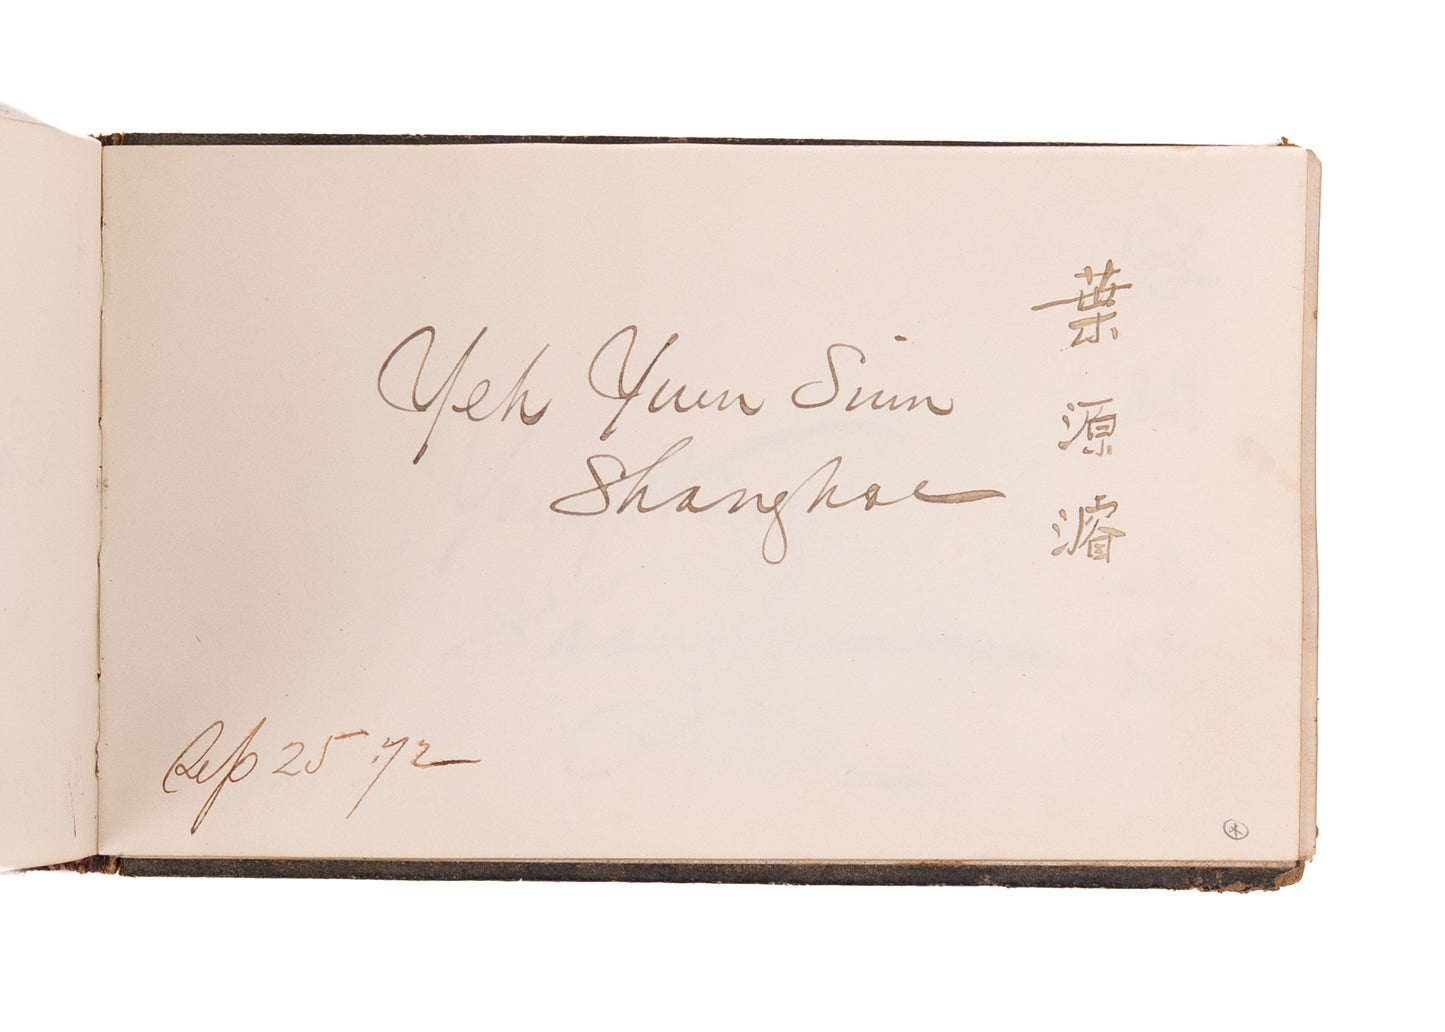 Yeh Yuen Siun
Shanghae
葉源濬
Sep 25 '72